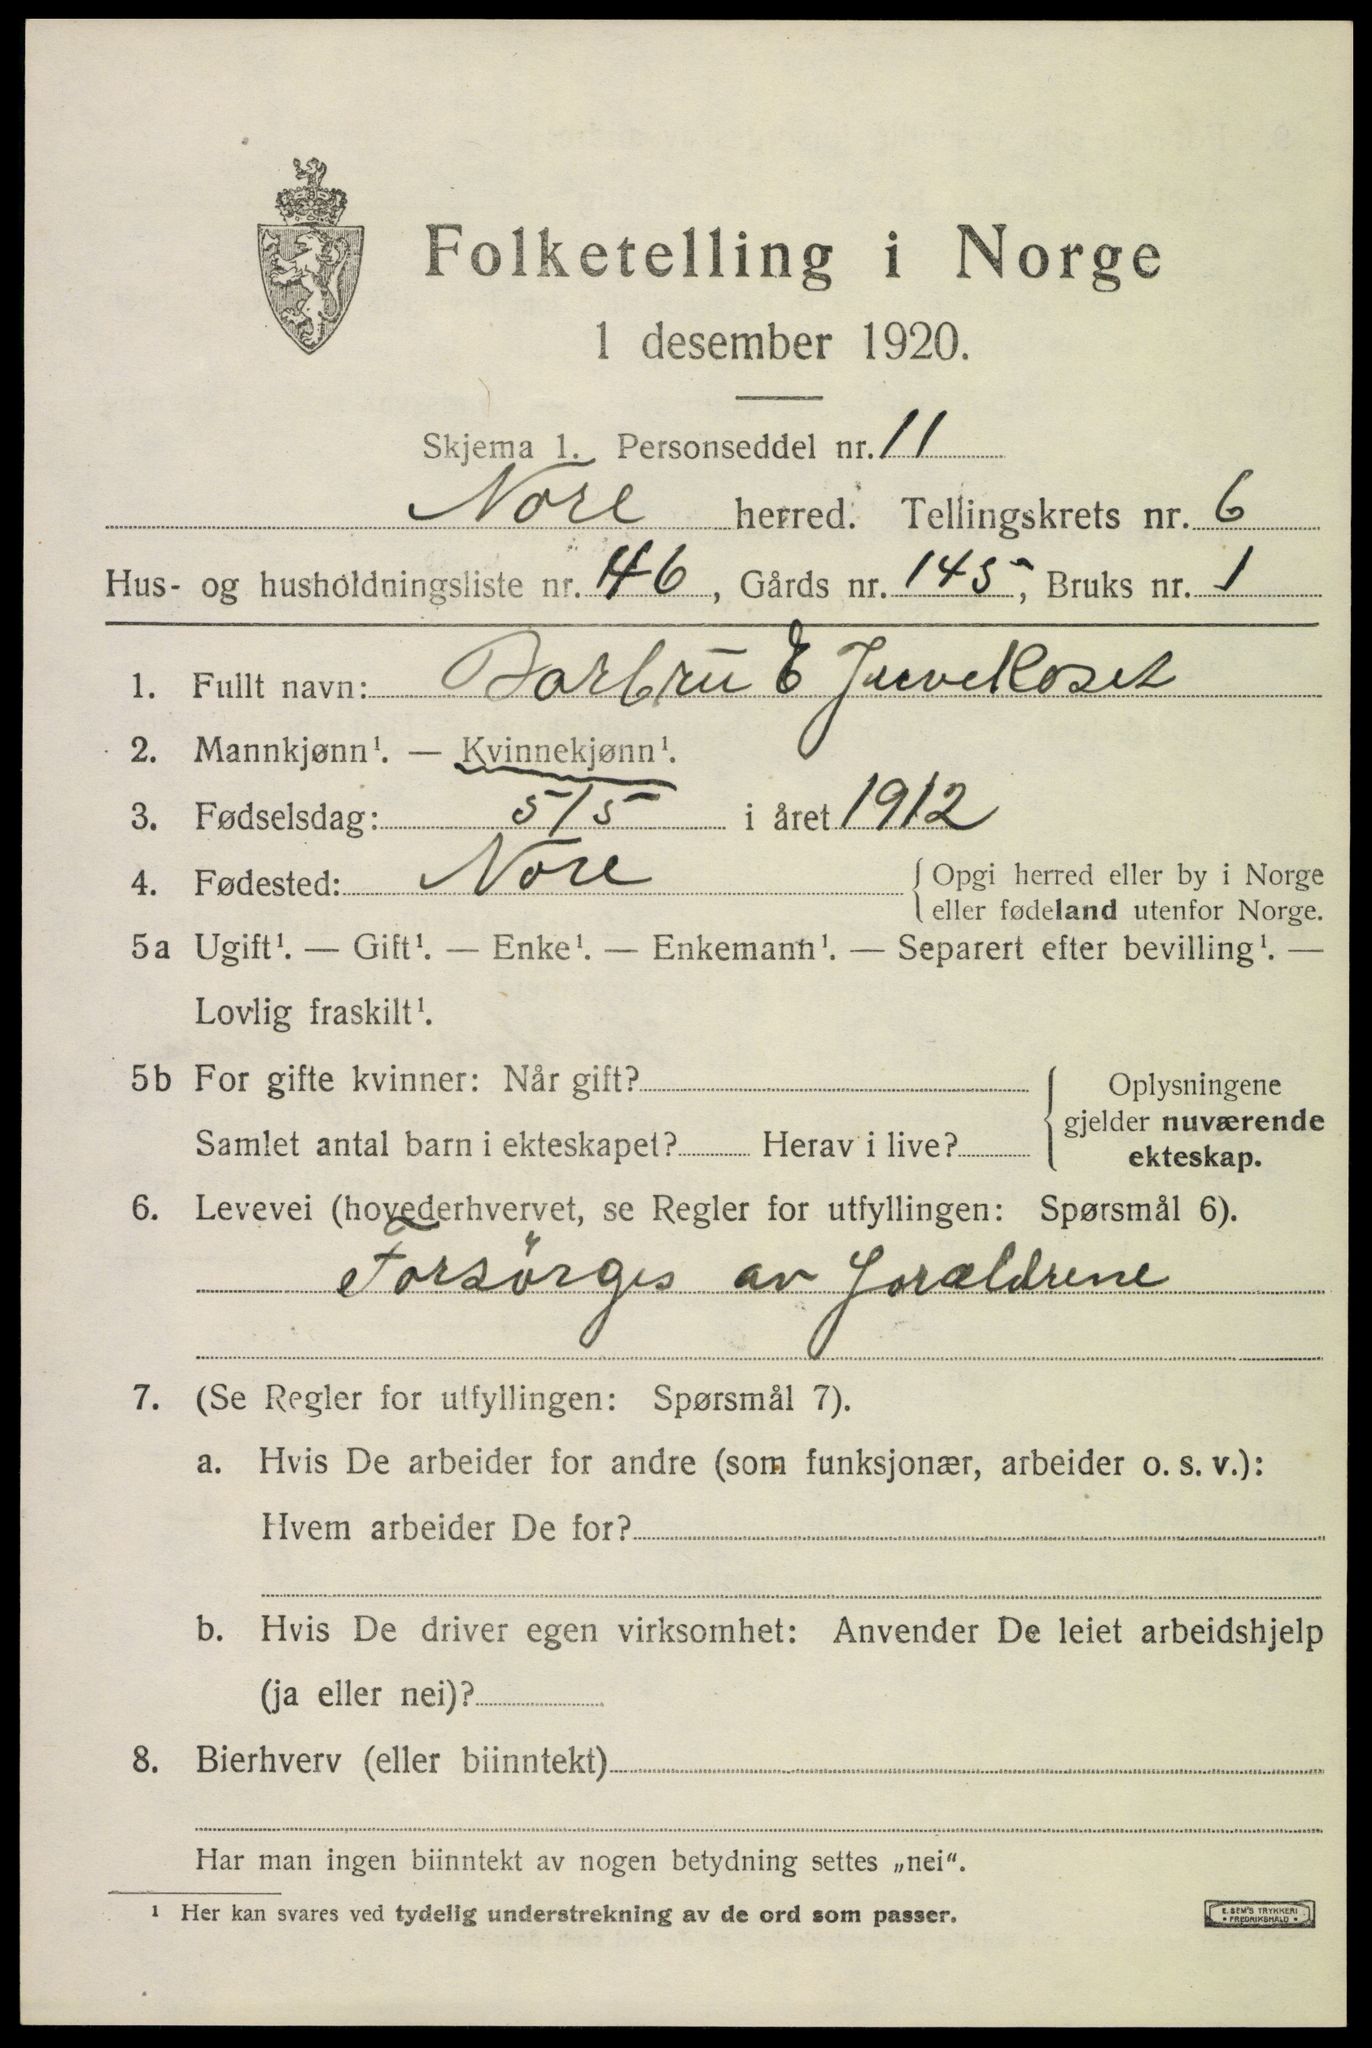 Folketelling i Norge
1 desember 1920.
Skjema 1. Personseddel nr. 11
Nore herred. Tellingskrets nr. 6
Hus- og husholdningsliste nr. 46, Gårds nr. 145, Bruks nr. 1
1. Fullt navn: Barbru E
2. Mannkjønn¹. — Kvinnekjønn¹.
3. Fødselsdag: 5/5 i året 1912
4. Fødested: Nore { Opgi herred eller by i Norge
eller fødeland utenfor Norge.
5a Ugift¹. — Gift¹. — Enke¹. — Enkemann¹. — Separert efter bevilling¹. —
Lovlig fraskilt¹.
5b For gifte kvinner: Når gift? { Oplysningene
gjelder nuværende
Samlet antal barn i ekteskapet? Herav i live?
ekteskap.
6. Levevei (hovederhvervet, se Regler for utfyllingen: Spørsmål 6).
Forsörges av foreldrene
7. (Se Regler for utfyllingen: Spørsmål 7).
a. Hvis De arbeider for andre (som funksjonær, arbeider o. s. v.):
Hvem arbeider De for?
b. Hvis De driver egen virksomhet: Anvender De leiet arbeidshjelp
(ja eller nei)?
8. Bierhverv (eller biinntekt)
Har man ingen biinntekt av nogen betydning settes „nei“.
¹ Her kan svares ved tydelig understrekning av de ord som passer.
E. SEM'S TRYKKERI
• FREDRIKSHALD •